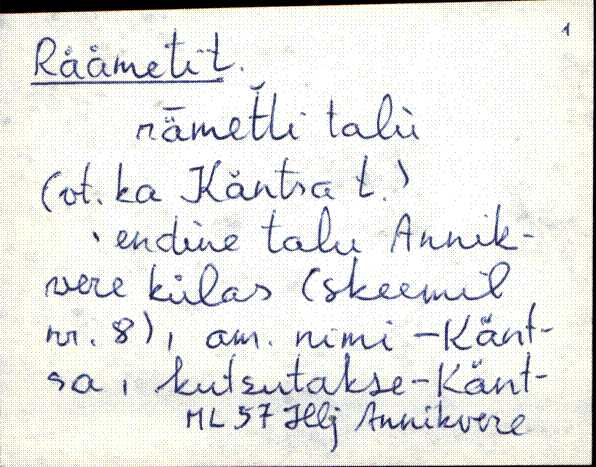 1
Räämeti t.
rämetti talu
(vt. ka Käntsa t.)
endine talu Annik-
vere külas (skeemil
nr. 8), am. nimi - Känt-
sa, kutsutakse - Känt-
ML 57 Hlj Annikvere